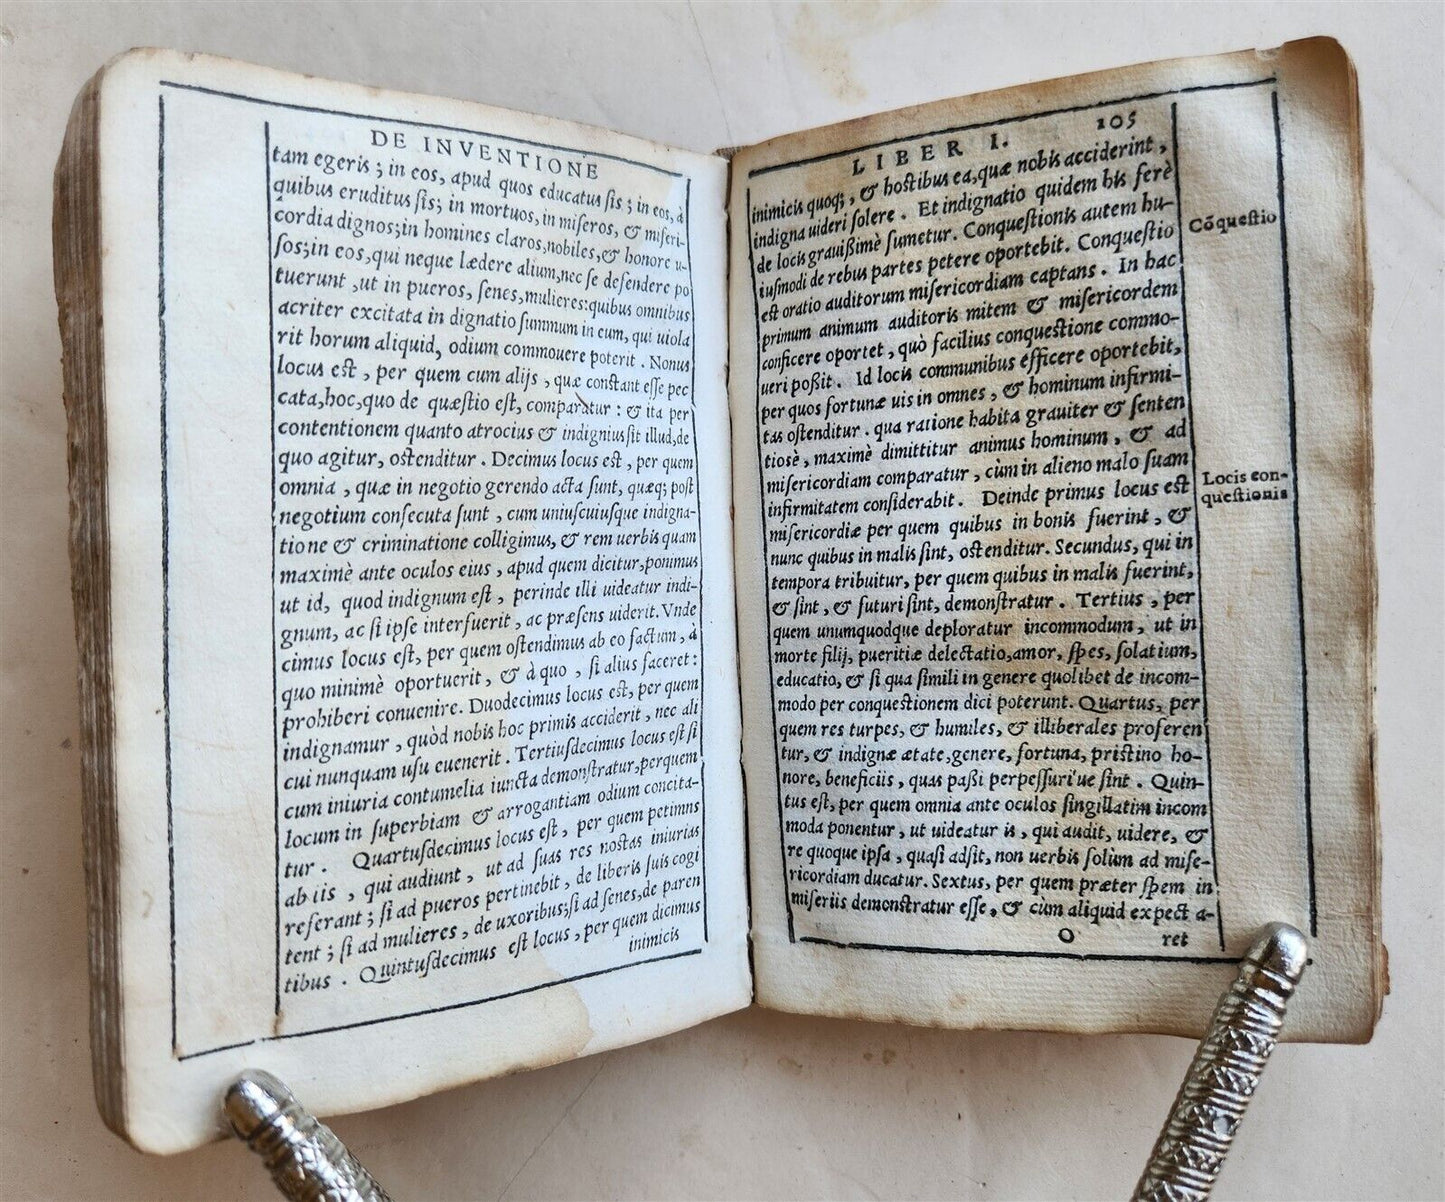 DE INVENTIONE
tam egeris; in eos, apud quos educatus sis; in eos, à
quibus eruditus sis; in mortuos, in miseros, & miseri-
cordia dignos; in homines claros, nobiles, & honore u-
sos; in eos, qui neque lædere alium, nec se defendere po
tuerunt, ut in pueros, senes, mulieres: quibus omnibus
acriter excitata in dignatio summum in eum, qui uiola
rit horum aliquid, odium commouere poterit. Nonus
locus est, per quem cum alijs, quæ constant esse pec
cata, hoc, quo de quæstio est, comparatur: & ita per
contentionem quanto atrocius & indignius sit illud, de
quo agitur, ostenditur. Decimus locus est, per quem
omnia, quæ in negotio gerendo acta sunt, quæq; post
negotium consecuta sunt, cum uniuscuiusque indigna-
tione & criminatione colligimus, & rem uerbis quam
maximè ante oculos eius, apud quem dicitur, ponimus
ut id, quod indignum est, perinde illi uideatur indi-
gnum, ac si ipse interfuerit, ac præsens uiderit. Vnde
cimus locus est, per quem ostendimus ab eo factum, à
quo minimè oportuerit, & à quo, si alius faceret:
prohiberi conuenire. Duodecimus locus est, per quem
indignamur, quòd nobis hoc primis acciderit, nec ali
cui nunquam usu euenerit. Tertiusdecimus locus est si
cum iniuria contumelia iuncta demonstratur, perquem
locum in superbiam & arrogantiam odium concita-
tur. Quartusdecimus locus est, per quem petimns
ab iis, qui audiunt, ut ad suas res nostas iniurias
referant; si ad pueros pertinebit, de liberis suis cogi
tent; si ad mulieres, de uxoribus; si ad senes, de paren
tibus. Quintusdecimus est locus, per quem dicimus
inimicis
LIBER I. 105
inimicis quoq;, & hostibus ea, quæ nobis acciderint,
indigna uideri solere. Et indignatio quidem his ferè
de locis grauißimè sumetur. Conquestionis autem hu-
iusmodi de rebus partes petere oportebit. Conquestio
est oratio auditorum misericordiam captans. In hac
primum animum auditoris mitem & misericordem
conficere oportet, quò facilius conquestione commo-
ueri poßit. Id locis communibus efficere oportebit,
per quos fortunæ uis in omnes, & hominum infirmi-
tas ostenditur. qua ratione habita grauiter & senten
tiosè, maximè dimittitur animus hominum, & ad
misericordiam comparatur, cùm in alieno malo suam
infirmitatem considerabit. Deinde primus locus est
misericordiæ per quem quibus in bonis fuerint, &
nunc quibus in malis sint, ostenditur. Secundus, qui in
tempora tribuitur, per quem quibus in malis fuerint,
& sint, & futuri sint, demonstratur. Tertius, per
quem unumquodque deploratur incommodum, ut in
morte filij, pueritiæ delectatio, amor, spes, solatium,
educatio, & si qua simili in genere quolibet de incom-
modo per conquestionem dici poterunt. Quartus, per
quem res turpes, & humiles, & illiberales proferen
tur, & indignæ ætate, genere, fortuna, pristino ho-
nore, beneficiis, quas paßi perpessuri'ue sint. Quin-
tus est, per quem omnia ante oculos singillatim incom
moda ponentur, ut uideatur is, qui audit, uidere, &
re quoque ipsa, quasi adsit, non uerbis solùm ad mise-
ricordiam ducatur. Sextus, per quem præter spem in
miseriis demonstratur esse, & cùm aliquid expect a-
O ret
Cõquestio
Locis con-
questionis